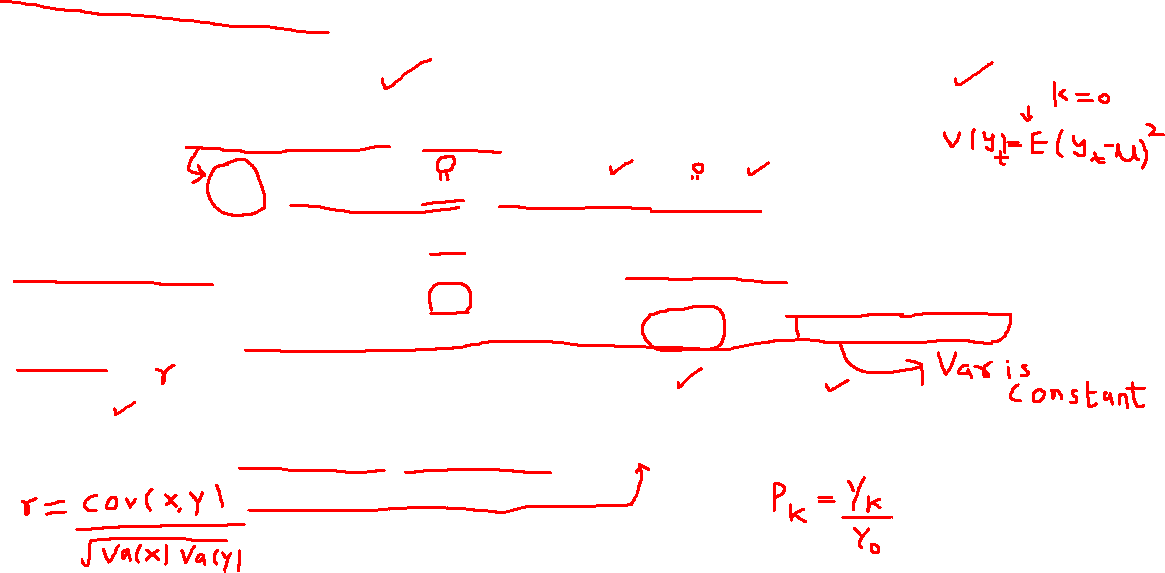 k=0
V(y_t)=E(y_t-μ)²
r
Var is
constant
r = cov(x,y)
√Va(x) Va(y)
P_k = Y_k
Y_0